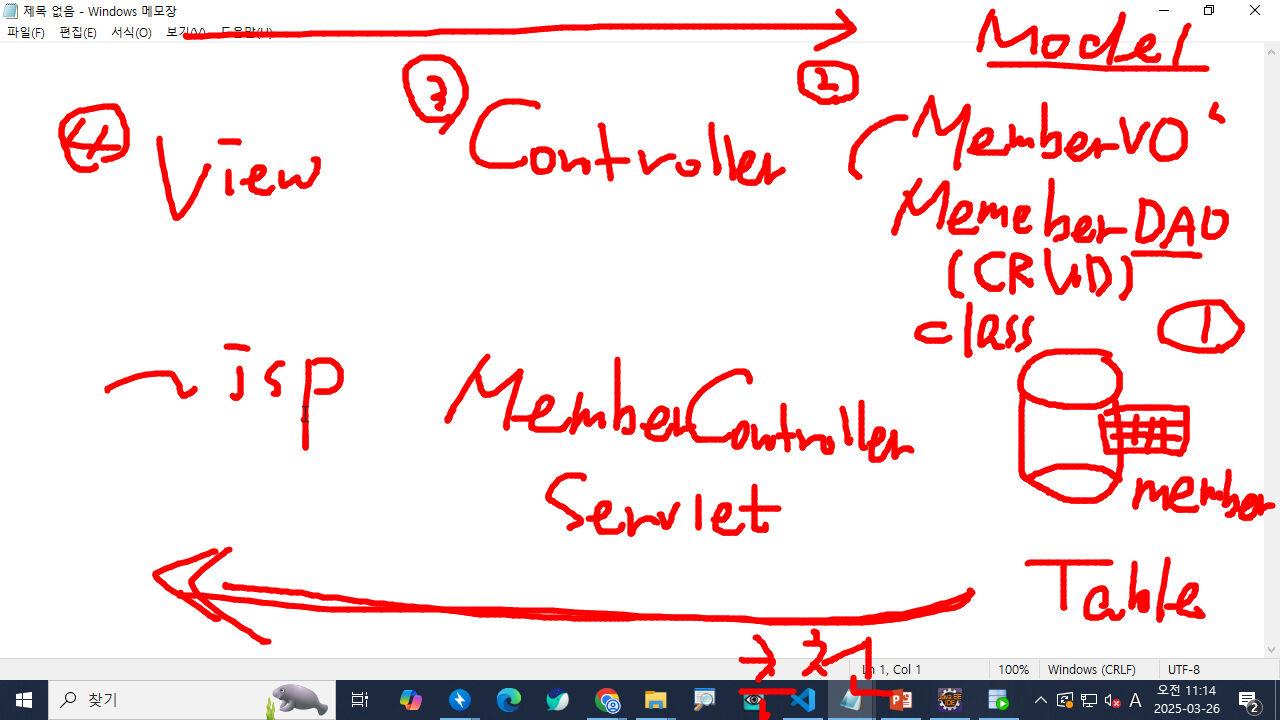 제목 없음 - Windows 메모장
파일(F) 편집(E) 서식(O) 보기(V) 도움말(H)
Model
④ View ③ Controller ② MemberVO
MemeberDAO
(CRUD)
class ①
~.jsp MemberController
Servlet
member
Table
Ln 1, Col 1 100% Windows (CRLF) UTF-8
찾기
A 오전 11:14
2025-03-26
2